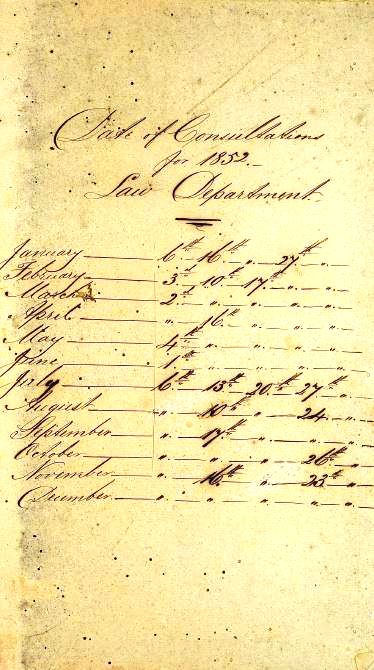 Date of Consultations
for 1852.
Law Department
January 6th 16th " 27th "
February 3d 10th 17th " "
March 2d " " " "
April " 16th " " "
May 4th " " " "
June 1st " " " "
July 6th 13th 20th 27th "
August " 10th " 24 "
September " 17th " " "
October " " " 26th "
November " 16th " 23th "
December " " " " "